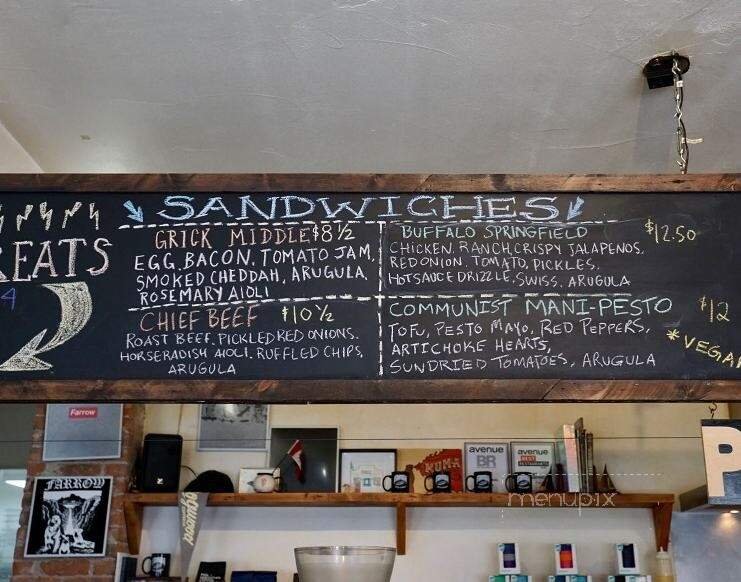 SANDWICHES
EATS
4
GRICK MIDDLE $8½
EGG, BACON, TOMATO JAM,
SMOKED CHEDDAH, ARUGULA,
ROSEMARY AIOLI
CHIEF BEEF $10½
ROAST BEEF, PICKLED RED ONIONS.
HORSERADISH AIOLI, RUFFLED CHIPS,
ARUGULA
BUFFALO SPRINGFIELD $12.50
CHICKEN, RANCH, CRISPY JALAPENOS,
RED ONION, TOMATO, PICKLES.
HOTSAUCE DRIZZLE, SWISS, ARUGULA
COMMUNIST MANI-PESTO $12
TOFU, PESTO MAYO, RED PEPPERS, *VEGAN
ARTICHOKE HEARTS,
SUNDRIED TOMATOES, ARUGULA
Farrow
FARROW
NUMA
avenue
BR
avenue
BEST
RESTAURANTS
P
menupix